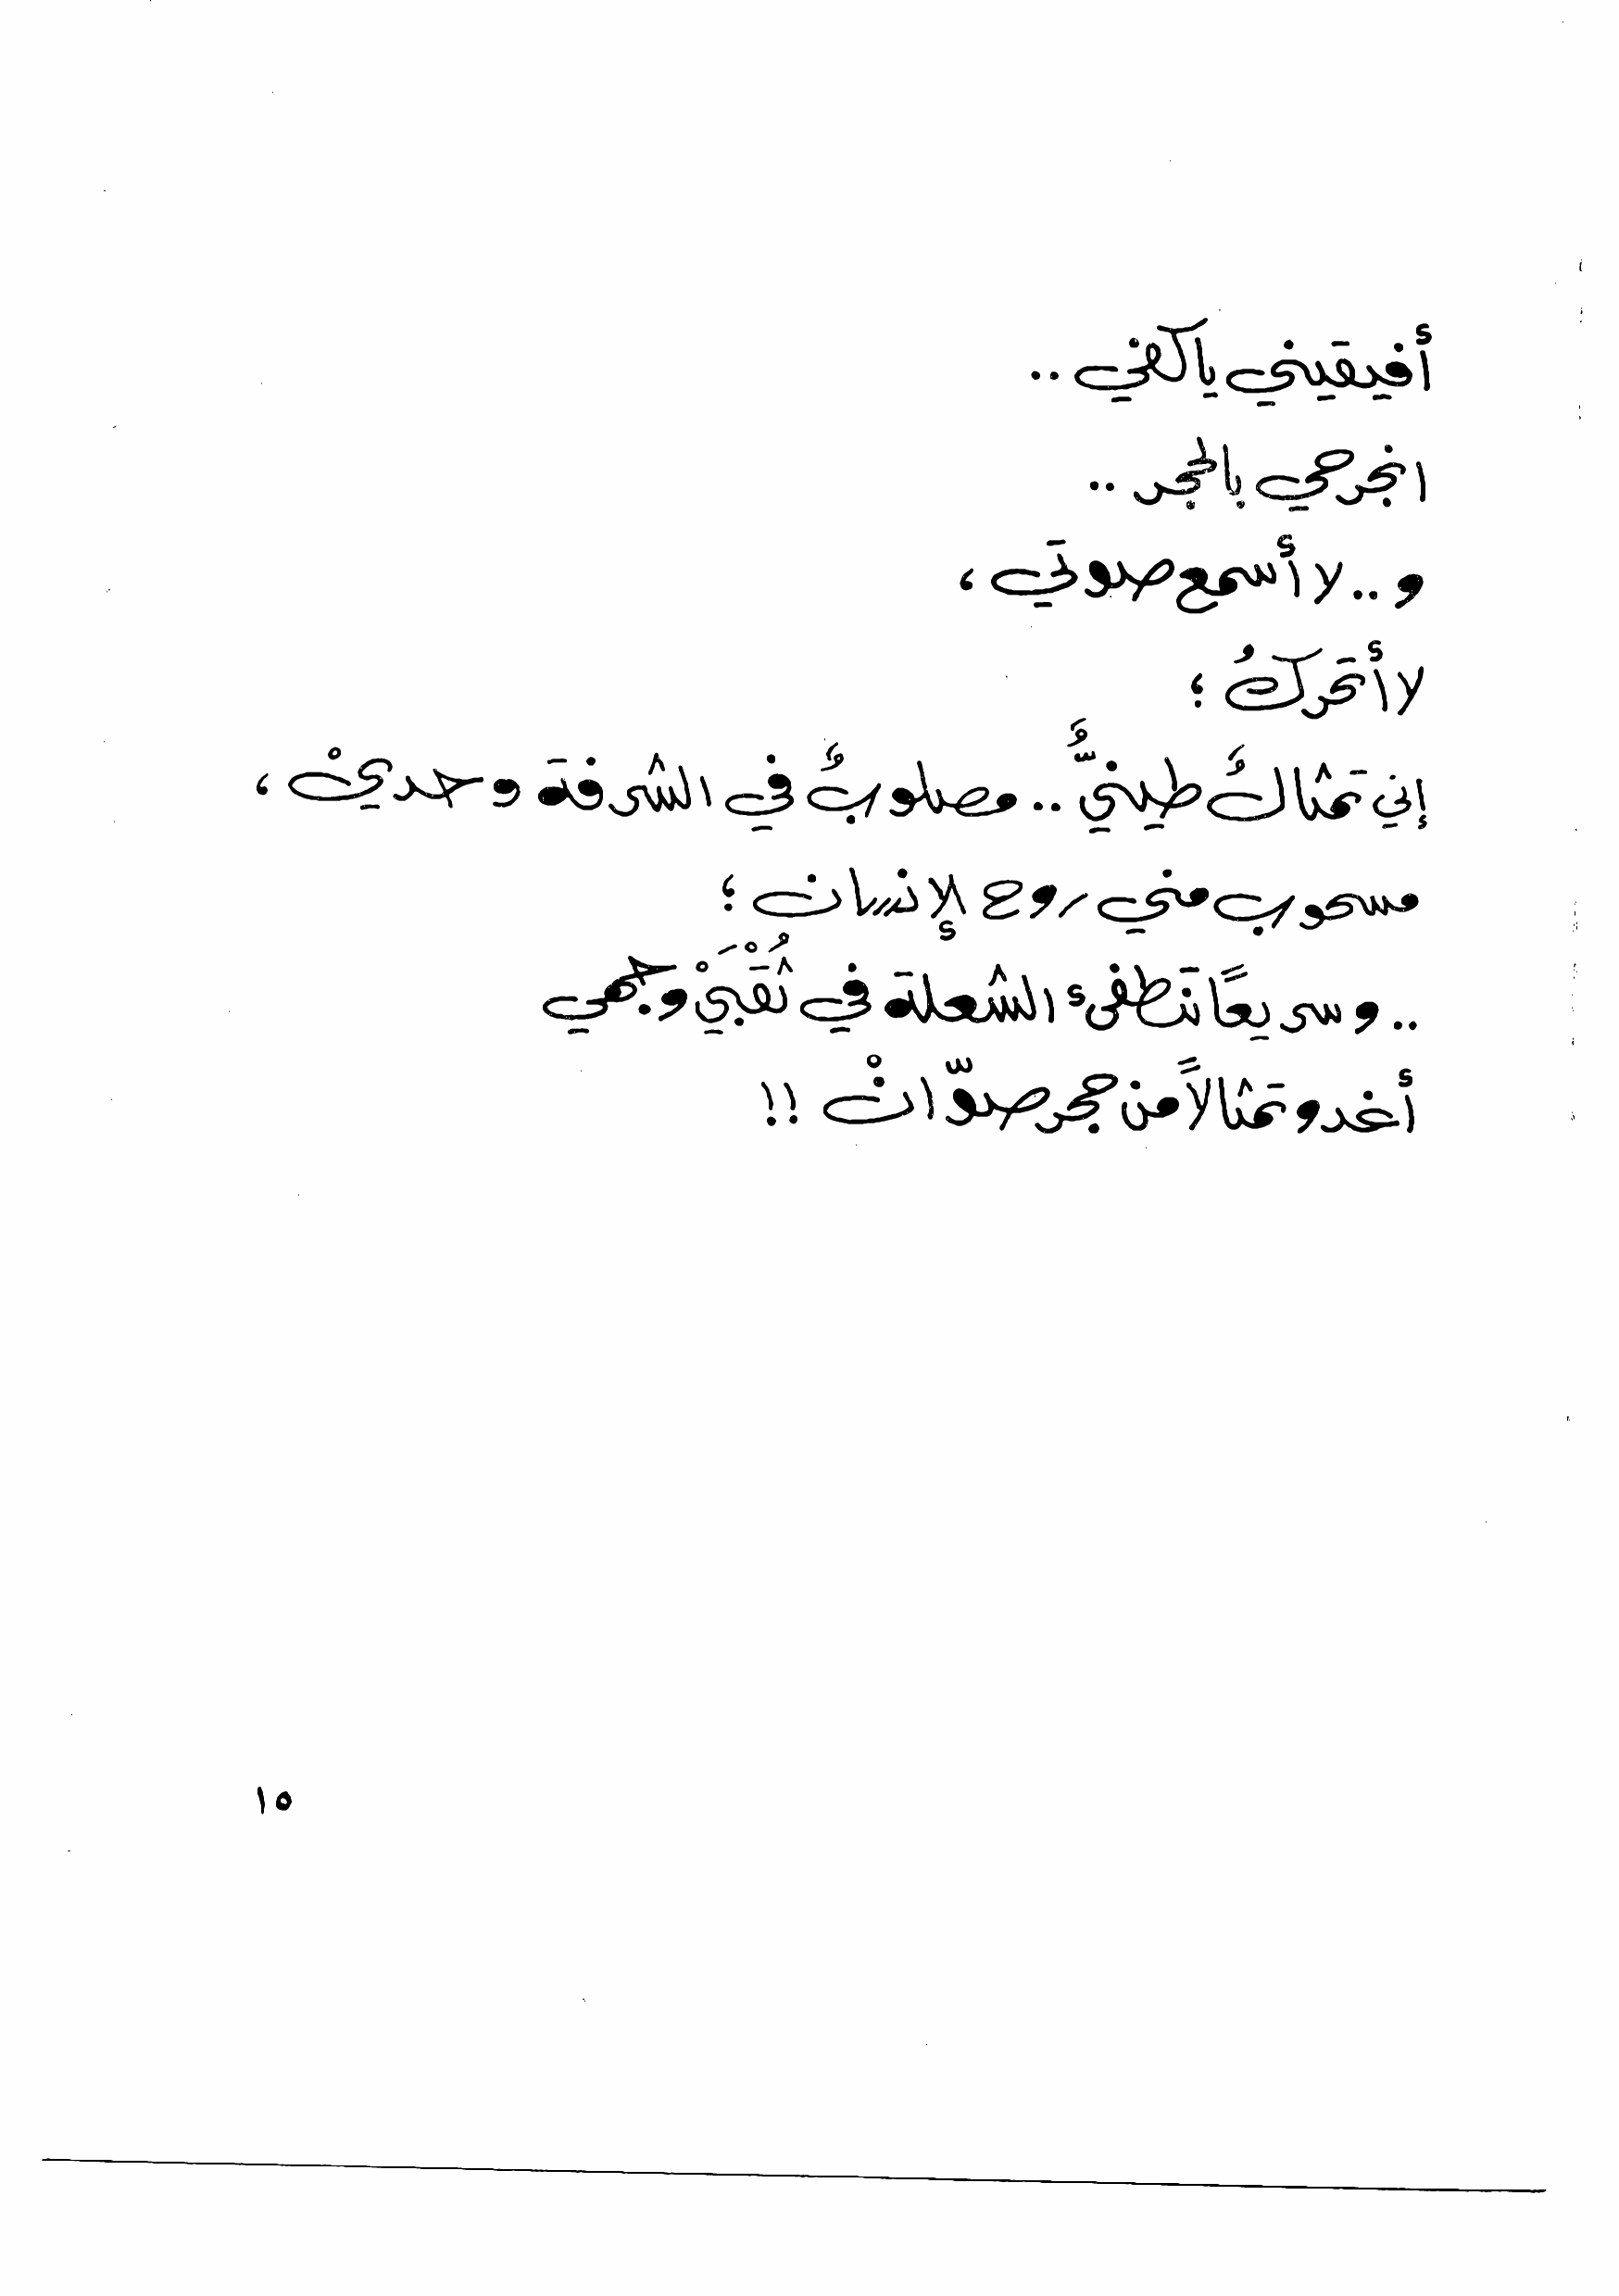 أفيقيني ياكفي ..
انجرحي بالحجر ..
و .. لا أسمع صوتي ،
لا أتحركُ ؛
إني تمثالٌ طينيٌّ .. مصلوبٌ في الشرفة وحدينْ ،
مسحوب مني روح الإنسان ؛
.. وسريعًا تنطفئ الشعلة في ثُقْبَيْ وجهي
أغدو تمثالاً من حجر صوّانْ !!
١٥